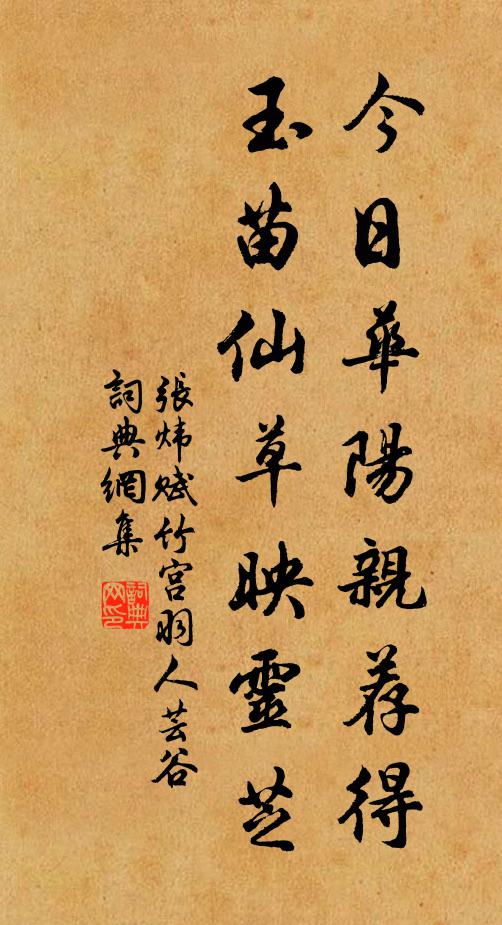 今日華陽親荐得
玉苗仙草映靈芝
張炜賦竹宮羽人芸谷
詞典網集
詞典
网印